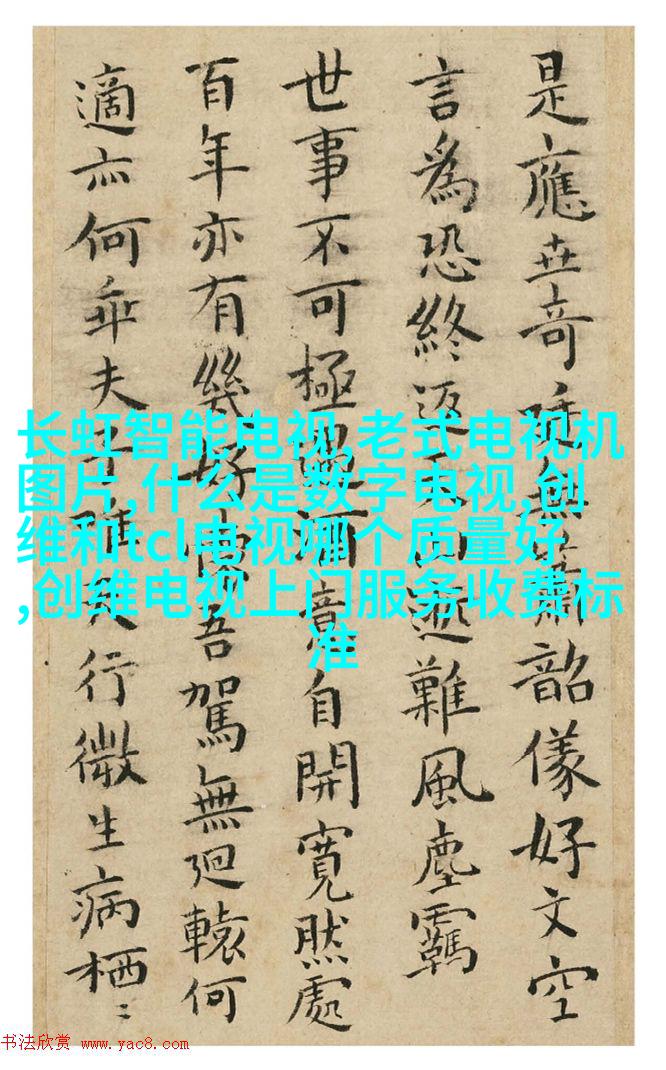 是應世奇無韶儀好文空
言為恐終迹難風塵羈
世事不可極酒意自開寬然處
百年亦有幾好懷吾駕無迴轅何
適亦何乖夫子行微生病栖〻
长虹智能电视,老式电视机
图片,什么是数字电视,创
维和tcl电视哪个质量好
,创维电视上门服务收费标
准
书法欣赏 www.yac8.com